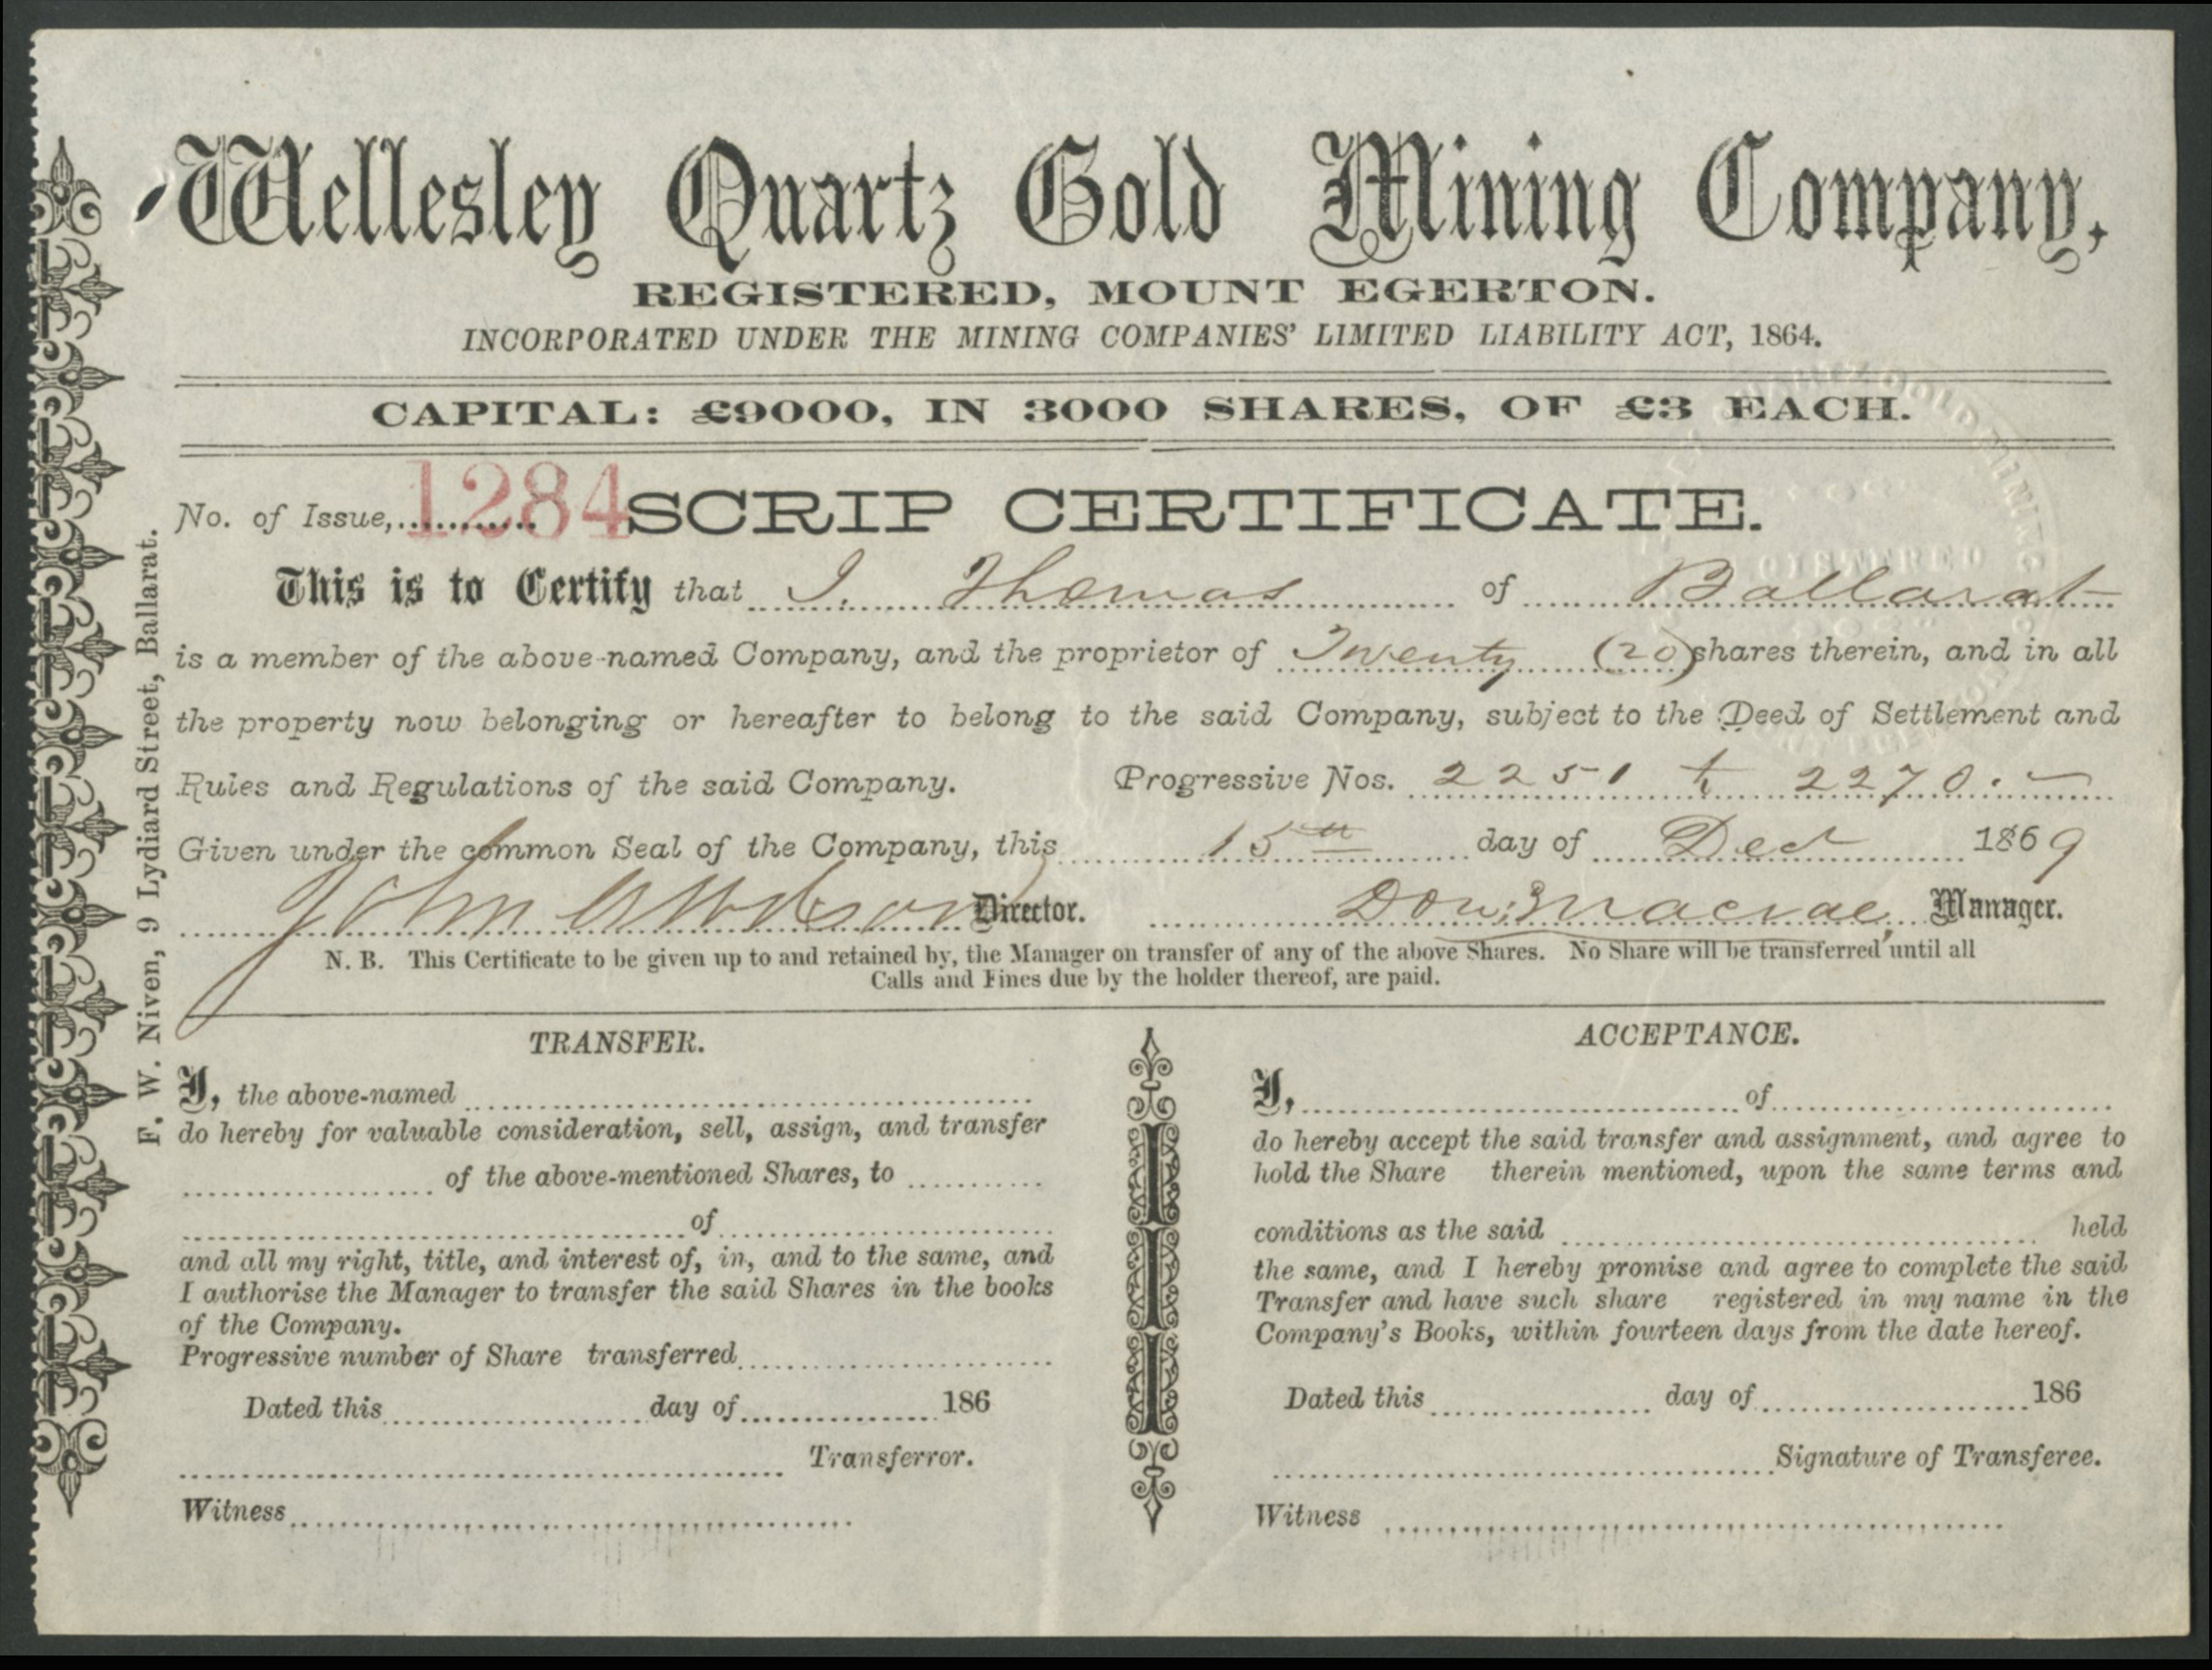 Wellesley Quartz Gold Mining Company,
REGISTERED, MOUNT EGERTON.
INCORPORATED UNDER THE MINING COMPANIES' LIMITED LIABILITY ACT, 1864.
CAPITAL: £9000, IN 3000 SHARES, OF £3 EACH.
No. of Issue, 1284 SCRIP CERTIFICATE.
This is to Certify that I. Thomas of Ballarat
is a member of the above-named Company, and the proprietor of Twenty (20) shares therein, and in all
the property now belonging or hereafter to belong to the said Company, subject to the Deed of Settlement and
Rules and Regulations of the said Company. Progressive Nos. 2251 to 2270.
Given under the common Seal of the Company, this 15th day of Dec 1869
John Director. Macrae, Manager.
N. B. This Certificate to be given up to and retained by, the Manager on transfer of any of the above Shares. No Share will be transferred until all
Calls and Fines due by the holder thereof, are paid.
F. W. Niven, 9 Lydiard Street, Ballarat.
TRANSFER.
I, the above-named
do hereby for valuable consideration, sell, assign, and transfer
of the above-mentioned Shares, to
of
and all my right, title, and interest of, in, and to the same, and
I authorise the Manager to transfer the said Shares in the books
of the Company.
Progressive number of Share transferred
Dated this day of 186
Transferror.
Witness
ACCEPTANCE.
I, of
do hereby accept the said transfer and assignment, and agree to
hold the Share therein mentioned, upon the same terms and
conditions as the said held
the same, and I hereby promise and agree to complete the said
Transfer and have such share registered in my name in the
Company's Books, within fourteen days from the date hereof.
Dated this day of 186
Signature of Transferee.
Witness